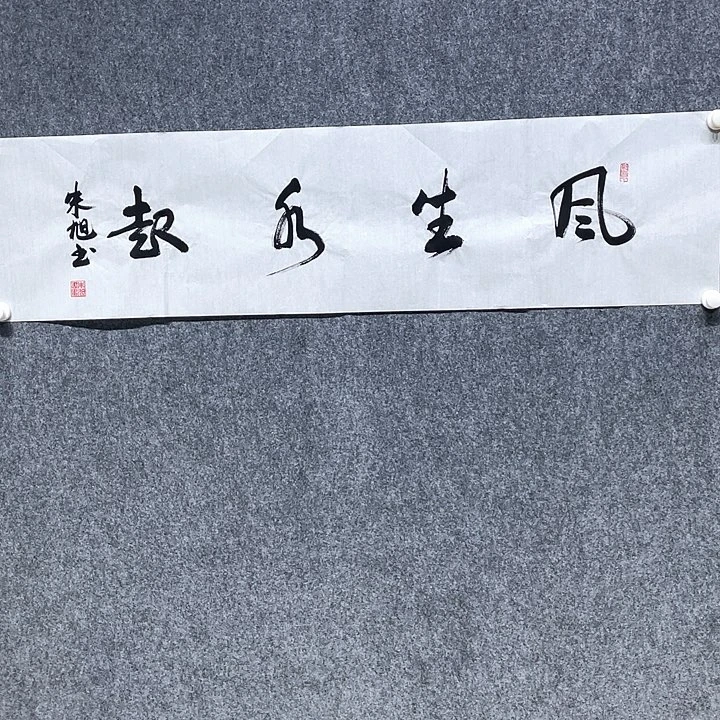 风生水起
朱旭书